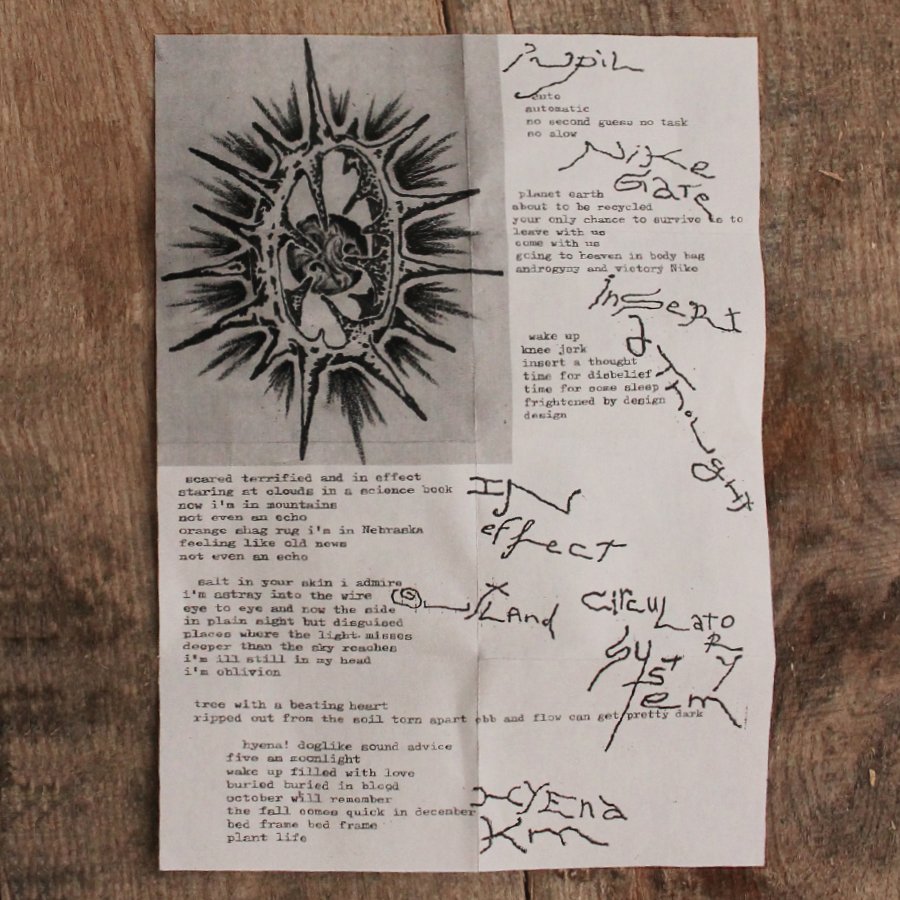 Pupil
auto
automatic
no second guess no task
so slow
Nike
Gate
planet earth
about to be recycled
your only chance to survive is to
leave with us
come with us
going to heaven in body bag
androgyny and victory Nike
insert
a Thought
wake up
knee jerk
insert a thought
time for disbelief
time for some sleep
frightened by design
design
In
effect
scared terrified and in effect
staring at clouds in a science book
now i'm in mountains
not even an echo
orange shag rug i'm in Nebraska
feeling like old news
not even an echo
salt in your skin i admire
i'm astray into the wire
eye to eye and now the side
in plain sight but disguised
places where the light misses
deeper than the sky reaches
i'm ill still in my head
i'm oblivion
Circulatory
System
tree with a beating heart
ripped out from the soil torn apart ebb and flow can get pretty dark
Hyena
hyena! doglike sound advice
five am moonlight
wake up filled with love
buried buried in blood
october will remember
the fall comes quick in december
bed frame bed frame
plant life